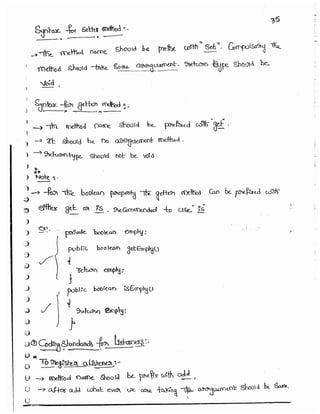 35
Syntax for Setter method :-
→ The method name should be prefix with "Set". Compulsory the
method should take some arguement. Return type should be
void.
Syntax for getter method :
→ The method name should be prefixed with "get".
→ It should be no arguement method.
→ Return type should not be void.
Note :-
→ For the boolean property the getter method can be prefixed with
either get or is. Recommended to use "is"
Ex:- private boolean empty;
public boolean getEmpty()
{
return empty;
}
public boolean isEmpty()
{
return empty;
}
Coding Standards for Listeners :-
To Register a listener :-
→ method name should be prefix with add
→ after add what ever we are taking the arguement should be same.